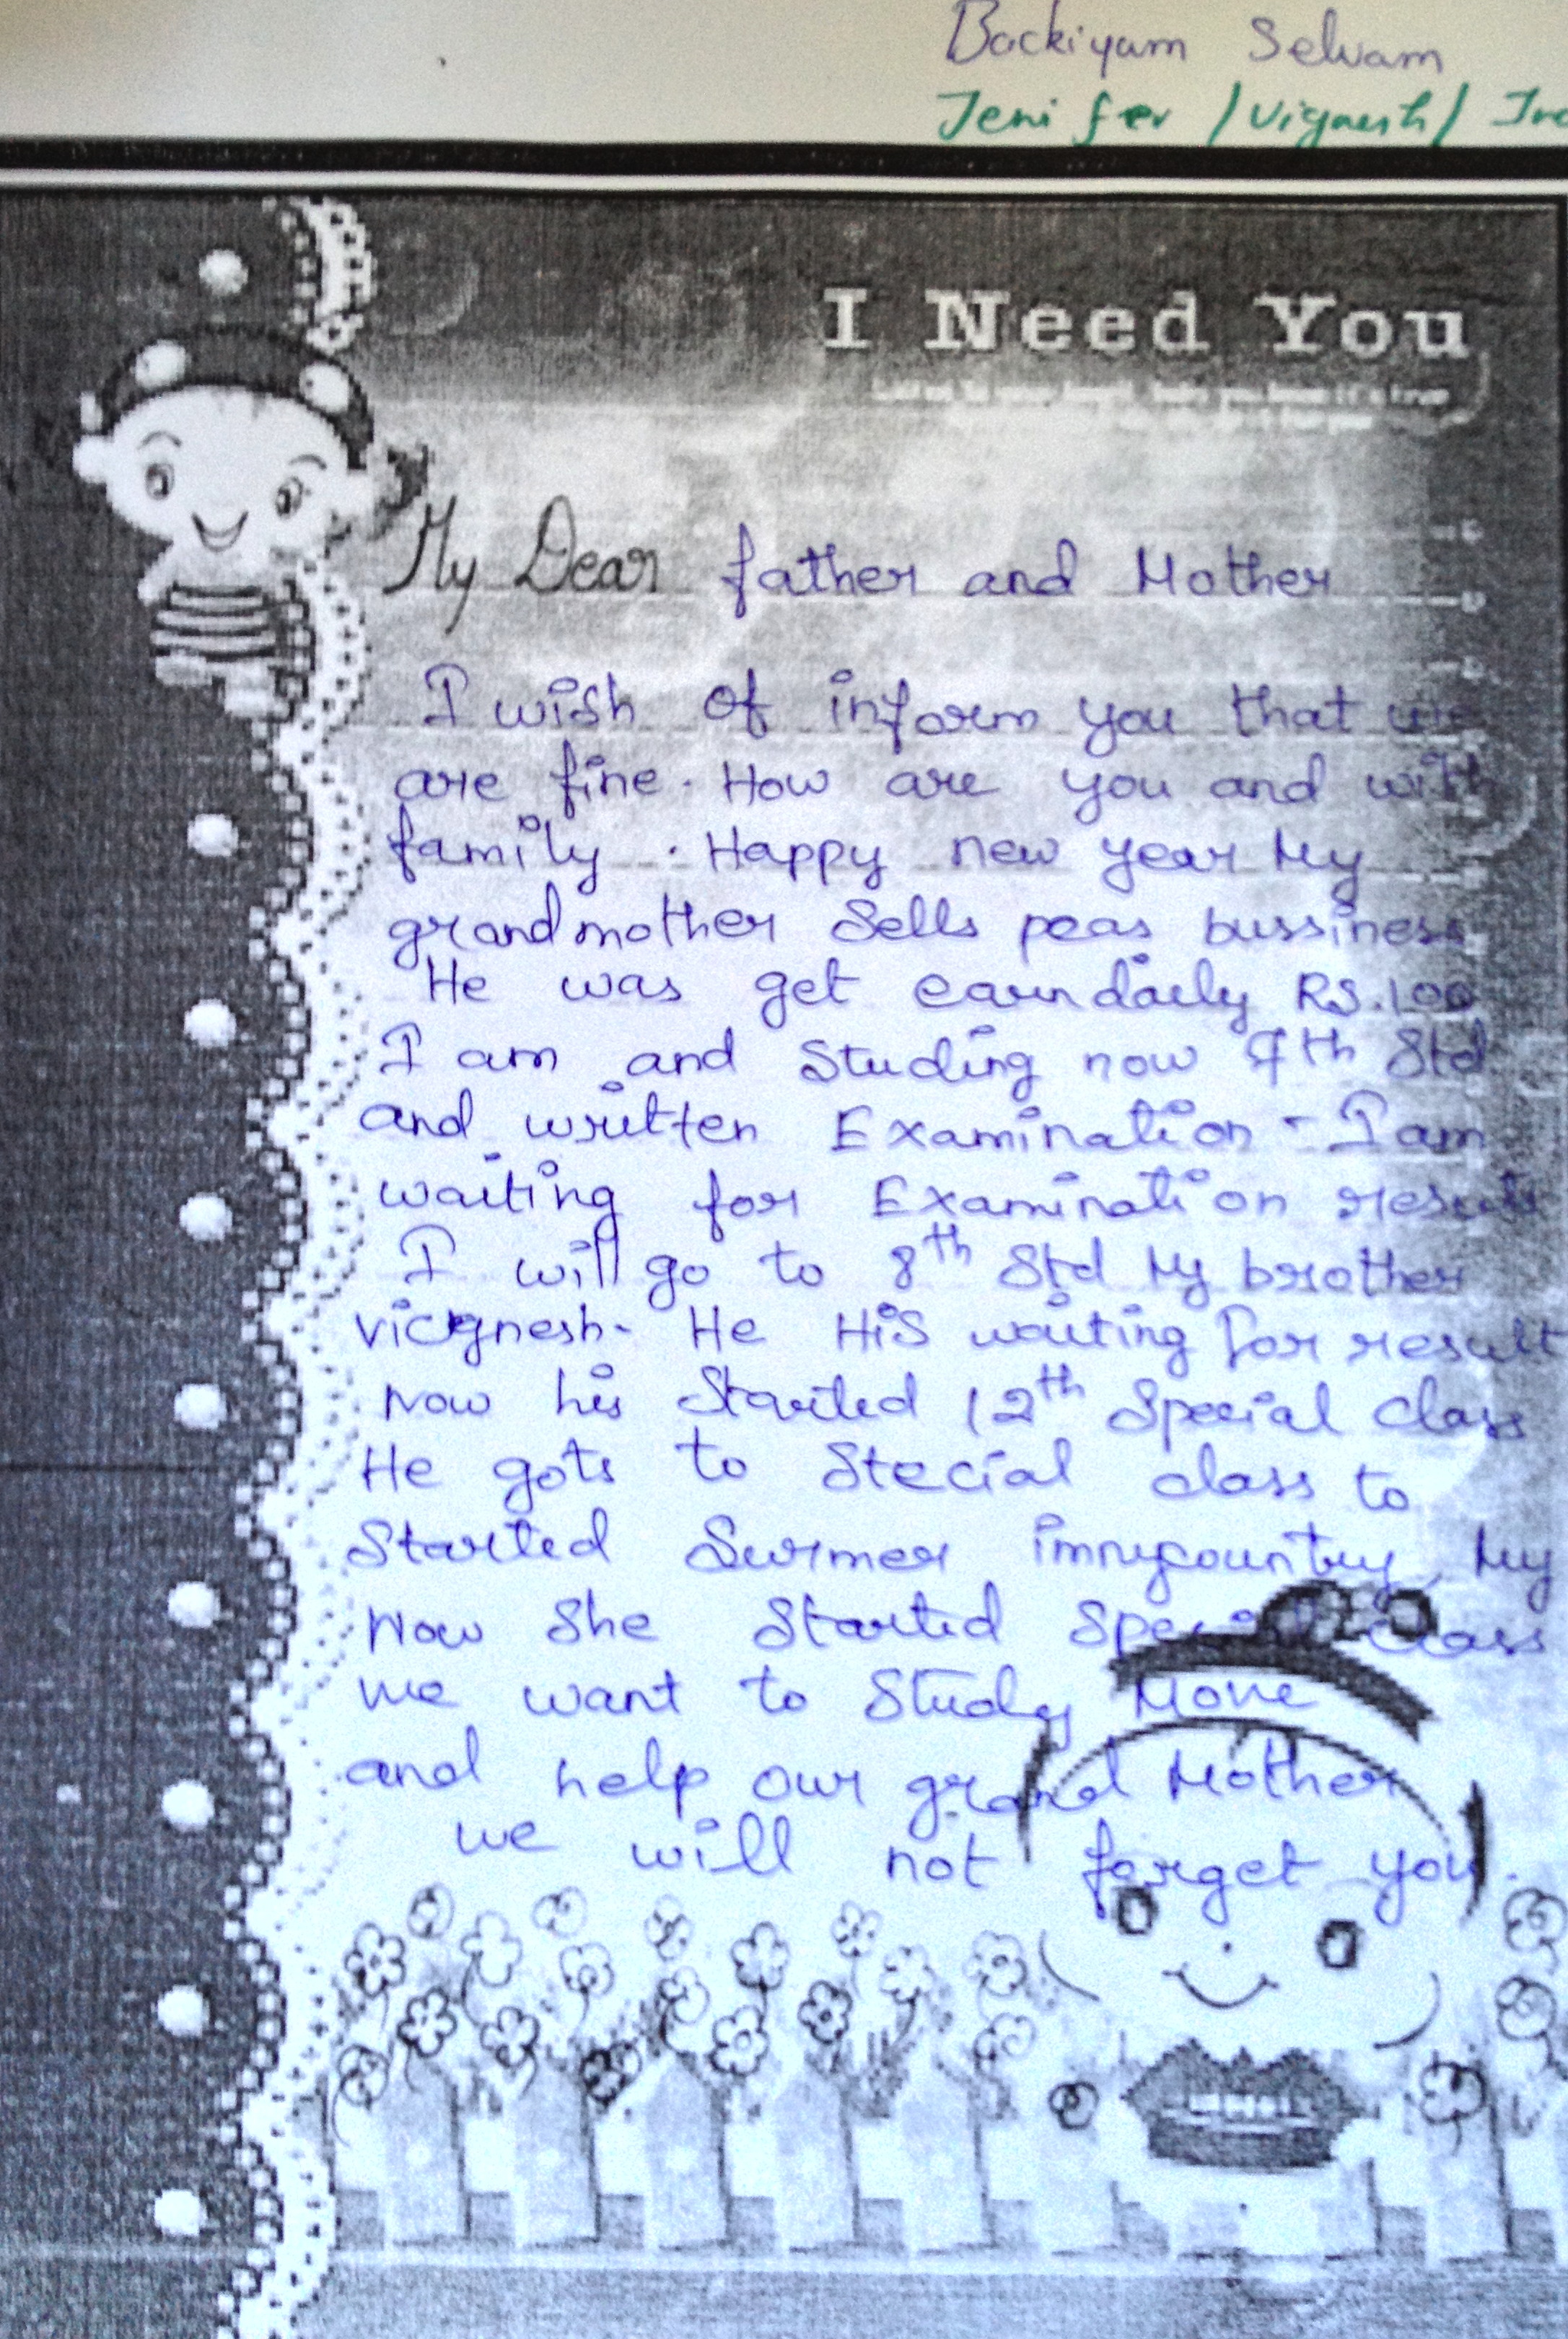 Backiyam Selvam
Jenifer / Vignesh /
I Need You
My Dear father and Mother
I wish of inform you that we
are fine. How are you and with
family. Happy new year My
grandmother Sells peas bussiness
He was get earn daily RS.100
I am and Studing now 7th Std
and written Examination - I am
waiting for Examination result
I will go to 8th Std My brother
vicgnesh. He His waiting for result
Now his Started 12th Special class
He gots to Stecial class to
Started Surmer inmycountry My
Now She Started Special class
we want to Study More
and help our grand Mother
we will not forget you.